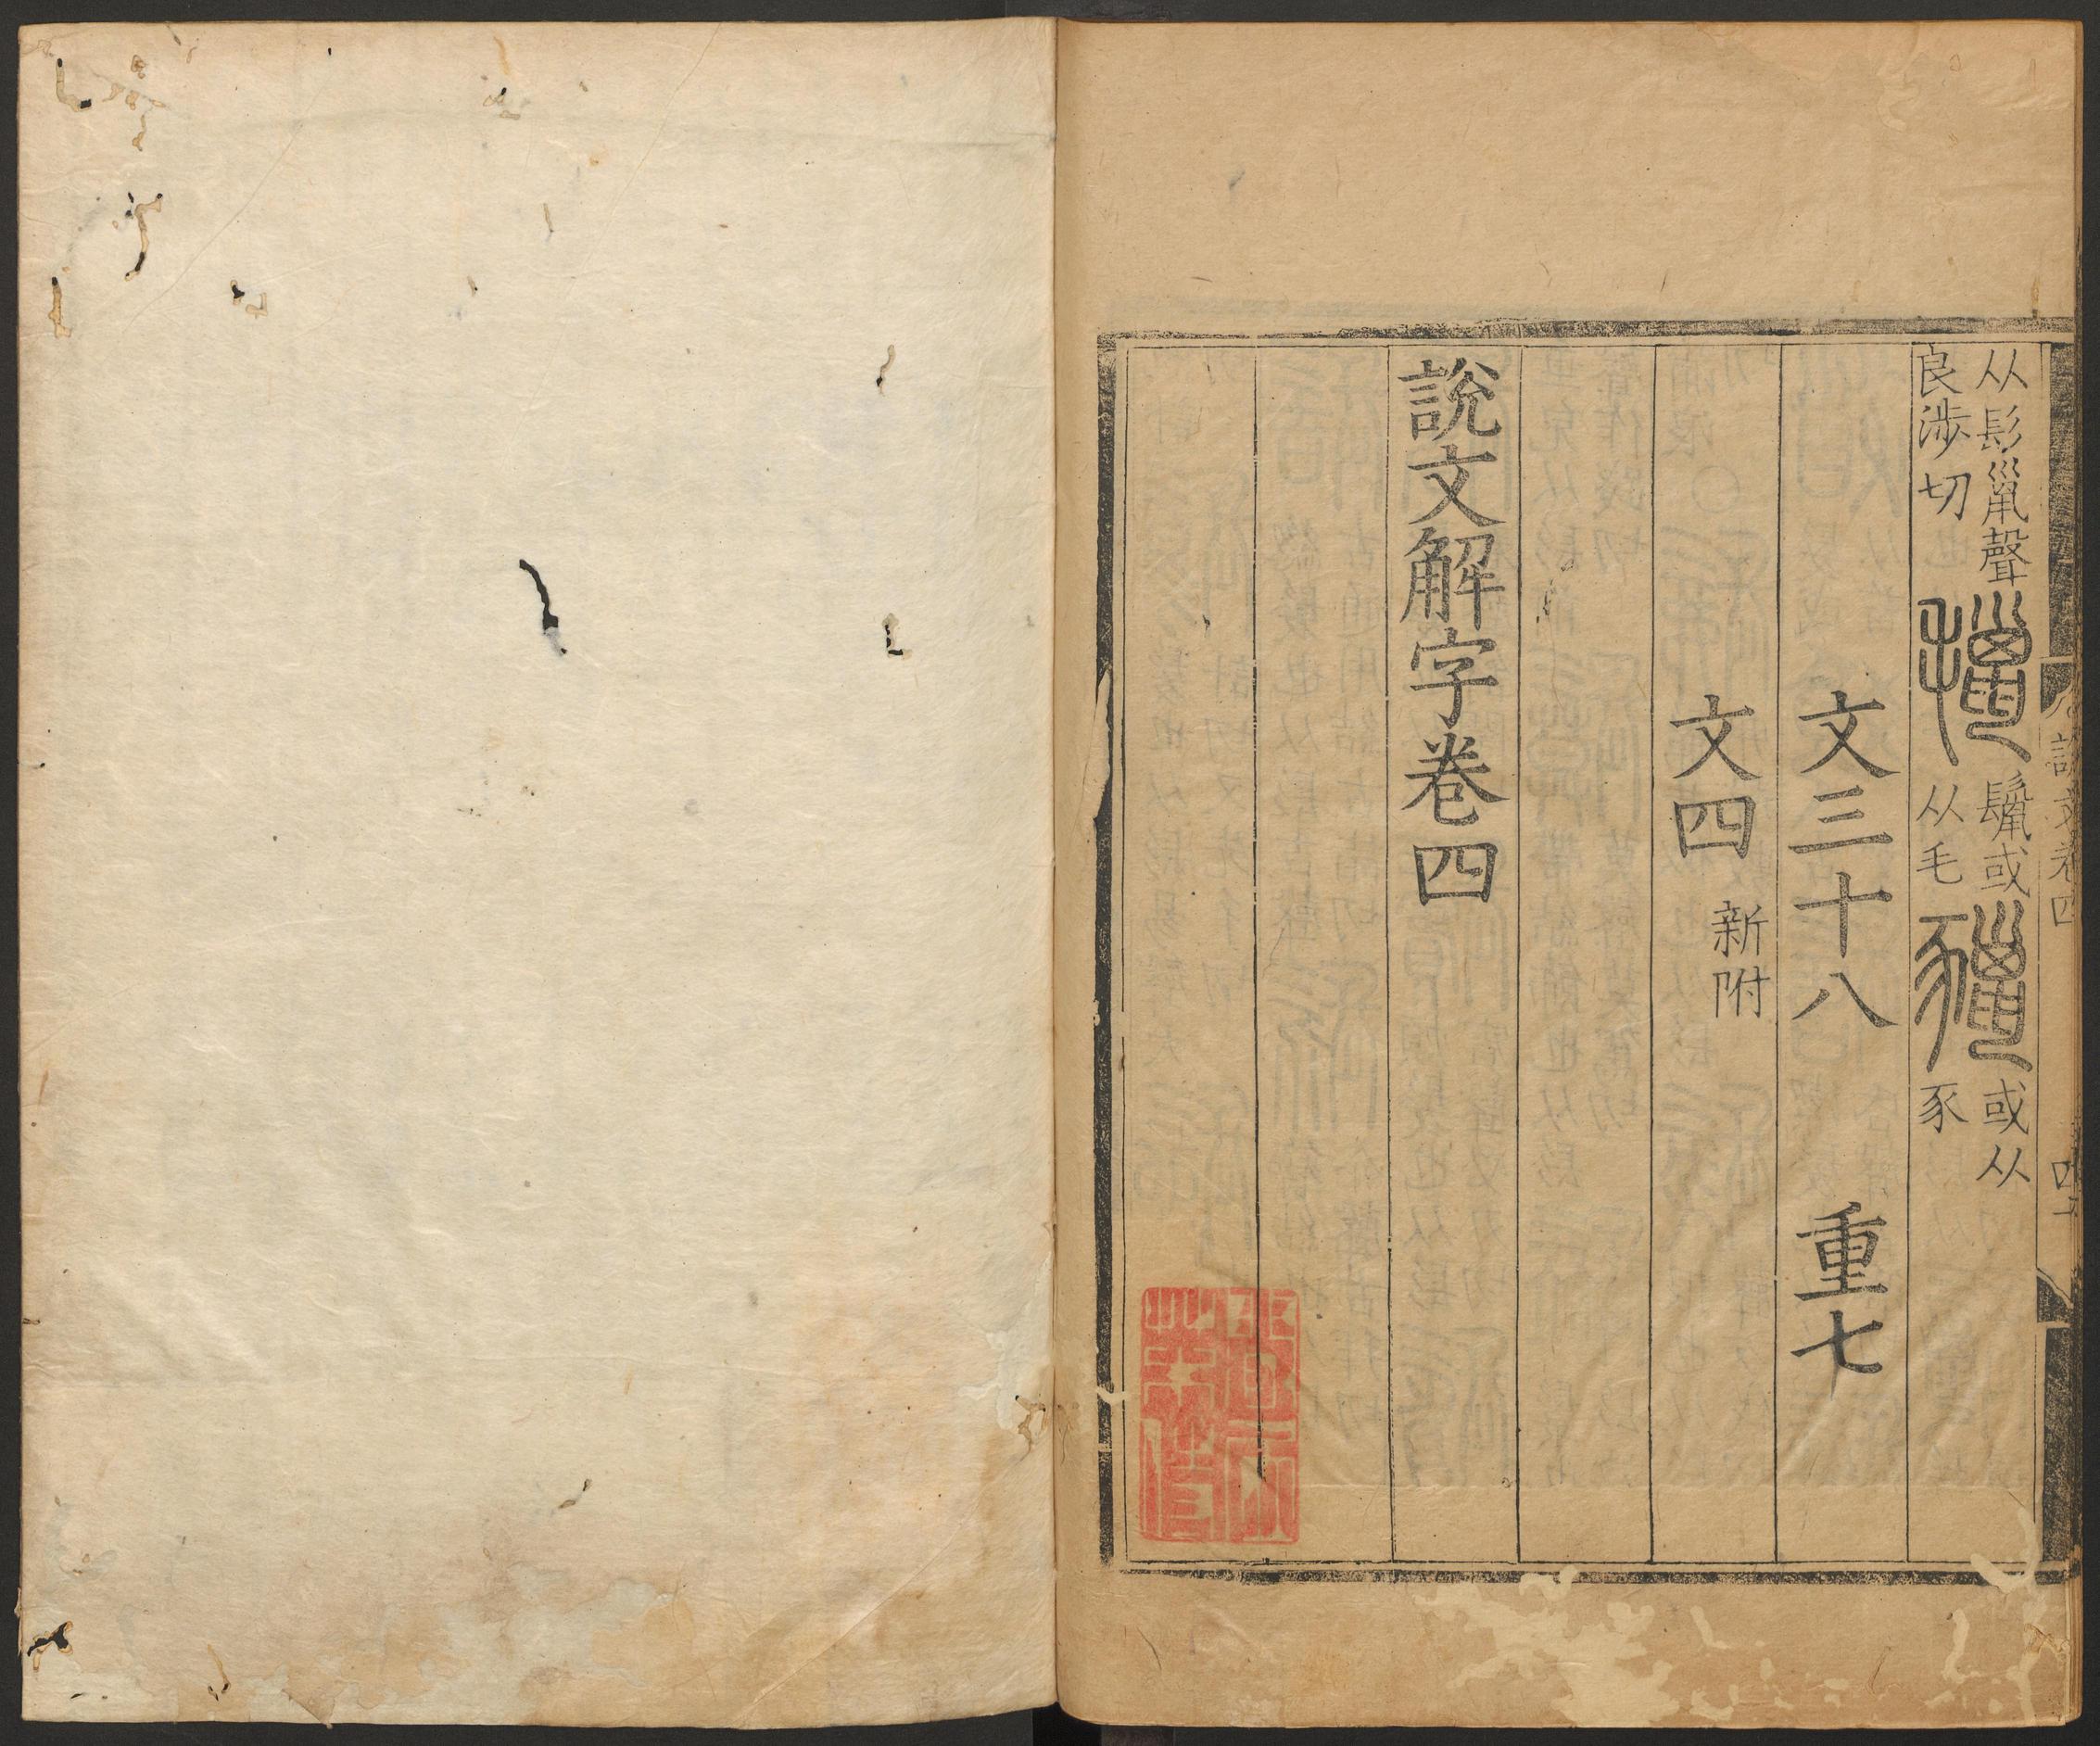 从髟巤聲
良涉切
鬣或
从毛
或从
豕
文三十八　重七
文四 新附
說文解字卷四
說文卷四